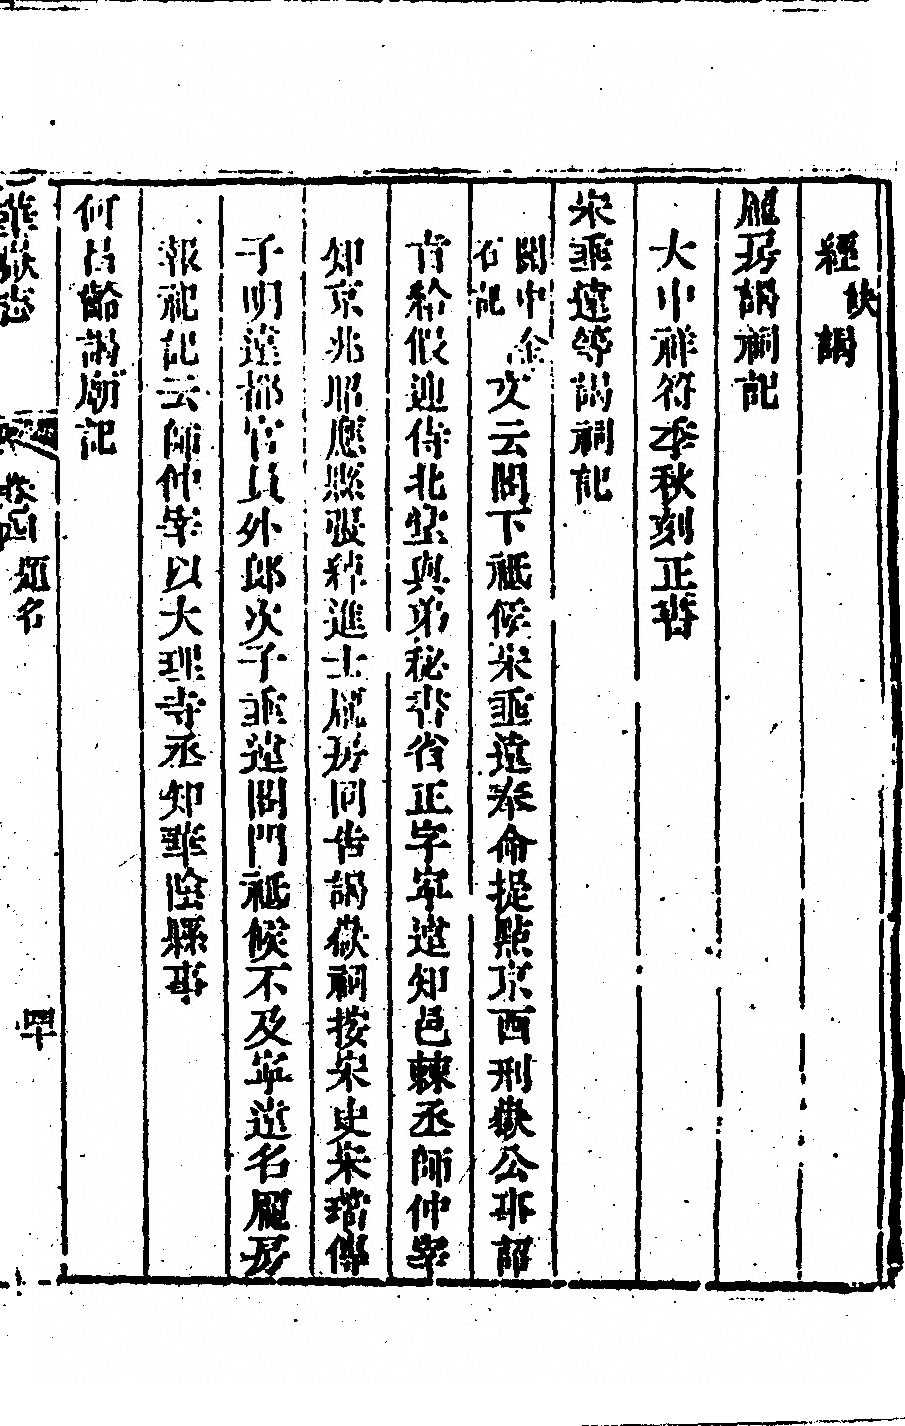 經缺謁
龎房謁祠記
大中祥符季秋刻正書
宋垂遠等謁祠記
關中金石記文云閤下祗候宋垂遠奉命提點京西刑獄公珎詔
首給假迎侍北堂與弟秘書省正字寧遠知邑棘丞師仲宰
知京兆昭應縣張綽進士龎房同告謁嶽祠按宋史宋璫傳
子明遠都官員外郎次子垂遠閤門祗候不及寧遠名龎房
報祀記云師仲宰以大理寺丞知華陰縣事
何昌齡謁廟記
華嶽志
卷四 題名